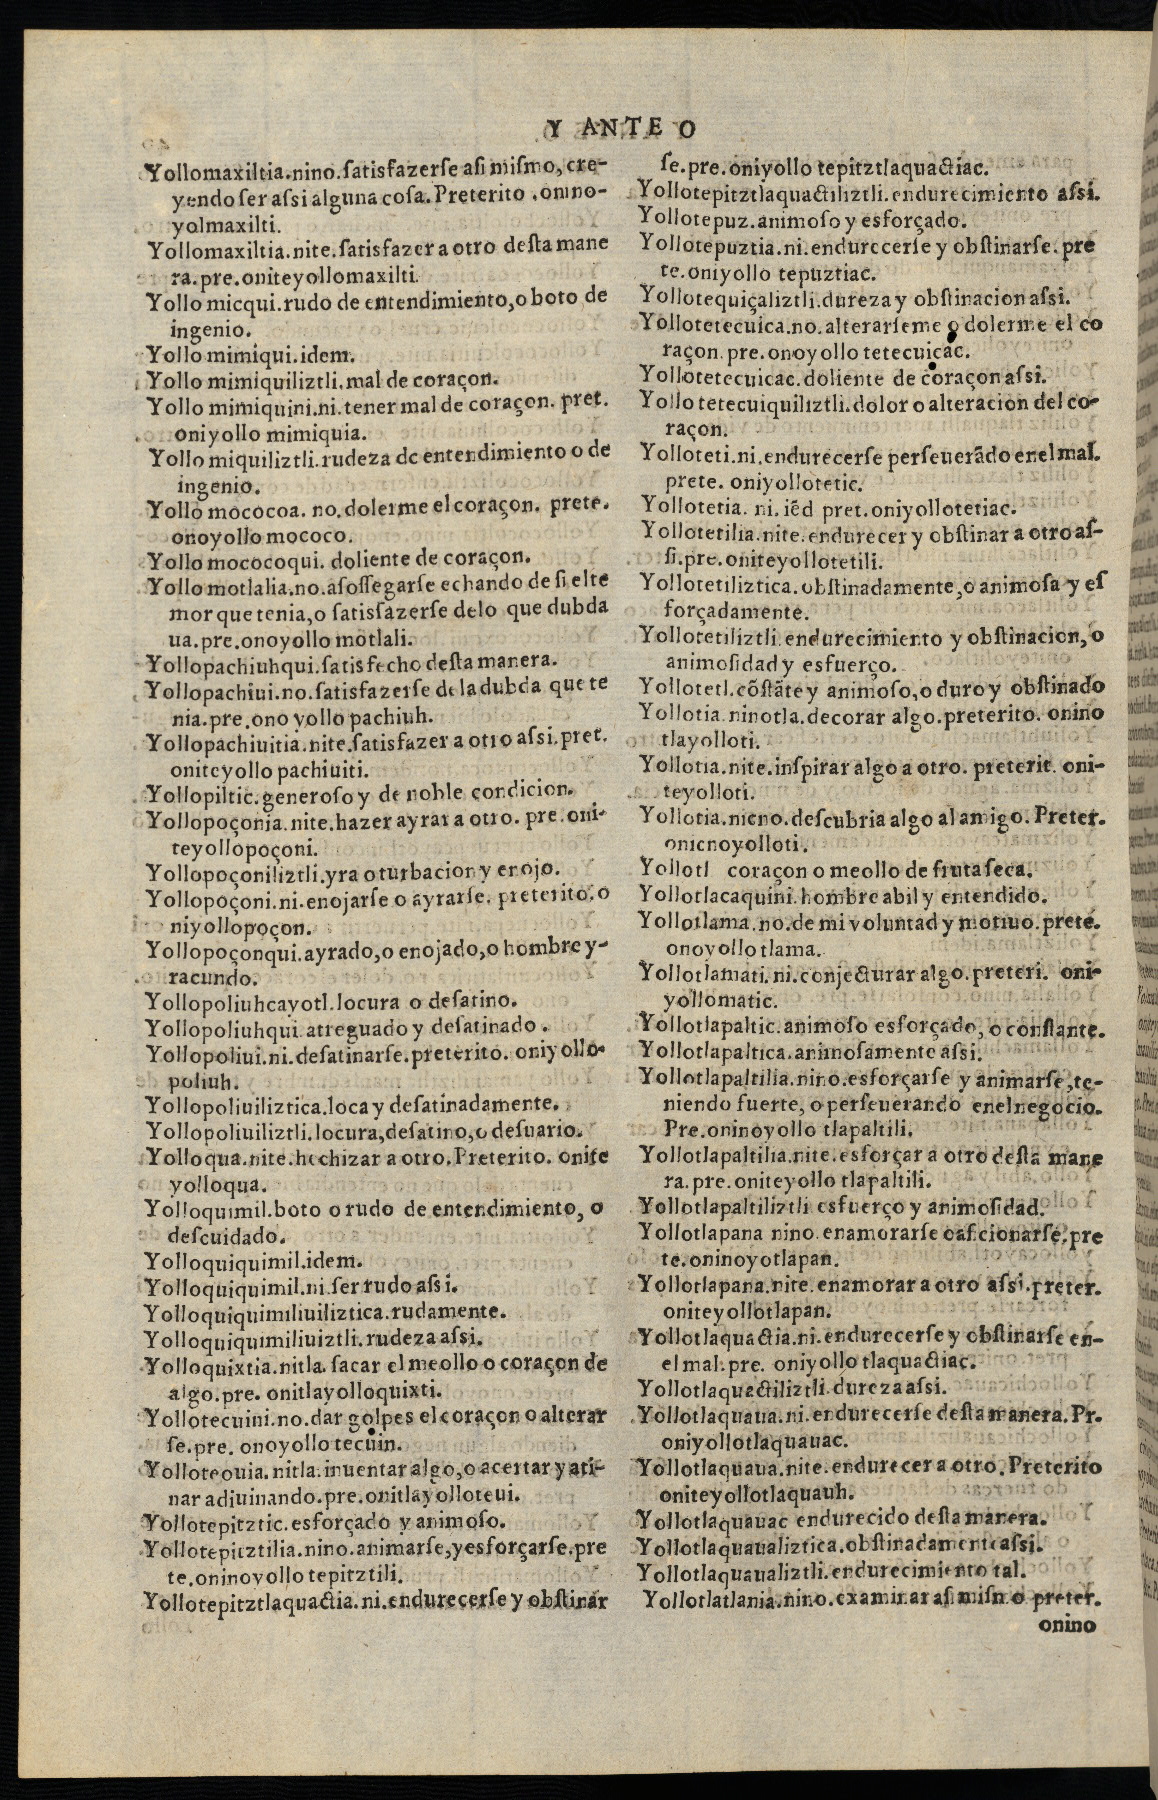 Y ANTE O
Yollomaxiltia.nino.ſatisfazerſe aſi miſmo, cre-
yendo ſer aſsi alguna coſa. Preterito .onino-
yolmaxilti.
Yollomaxiltia.nite.ſatisfazer a otro deſta mane
ra.pre.oniteyollomaxilti.
Yollo micqui.rudo de entendimiento,o boto de
ingenio.
Yollo mimiqui.idem.
Yollo mimiquiliztli.mal de coraçon.
Yollo mimiquini.ni.tener mal de coraçon. pret.
oniyollo mimiquia.
Yollo miquiliztli.rudeza de entendimiento o de
ingenio.
Yollo mococoa. no.dolerme el coraçon. prete.
onoyollo mococo.
Yollo mococoqui. doliente de coraçon.
Yollo motlalia.no.aſoſſegarſe echando de ſi elte
mor que tenia,o ſatisfazerſe delo que dubda
ua.pre.onoyollo motlali.
Yollopachiuhqui.ſatisfecho deſta manera.
Yollopachiui.no.ſatisfazerſe de la dubda que te
nia.pre.onoyollo pachiuh.
Yollopachiuitia.nite.ſatisfazer a otro aſsi.pret.
oniteyollo pachiuiti.
Yollopiltic.generoſo y de noble condicion.
Yollopoçonia.nite.hazer ayrar a otro. pre.oni-
teyollopoçoni.
Yollopoçoniliztli.yra o turbacion y enojo.
Yollopoçoni.ni.enojarſe o ayrarſe. preterito.o
niyollopoçon.
Yollopoçonqui.ayrado,o enojado,o hombre y-
racundo.
Yollopoliuhcayotl.locura o deſatino.
Yollopoliuhqui.atreguado y deſatinado.
Yollopoliui.ni.deſatinarſe.preterito. oniyollo-
poliuh.
Yollopoliuiliztica.loca y deſatinadamente.
Yollopoliuiliztli.locura,deſatino,o deſuario.
Yolloqua.nite.hechizar a otro.Preterito. onite
yolloqua.
Yolloquimil.boto o rudo de entendimiento, o
deſcuidado.
Yolloquiquimil.idem.
Yolloquiquimil.ni.ſer rudo aſsi.
Yolloquiquimiliuiliztica.rudamente.
Yolloquiquimiliuiztli.rudeza aſsi.
Yolloquixtia.nitla.ſacar el meollo o coraçon de
algo.pre. onitlayolloquixti.
Yollotecuini.no.dar golpes el coraçon o alterar
ſe.pre. onoyollo tecuin.
Yolloteouia.nitla.inuentar algo,o acertar y ati-
nar adiuinando.pre.onitlayolloteui.
Yollotepitztic.esforçado y animoſo.
Yollotepitztilia.nino.animarſe,y esforçarſe.pre
te.oninoyollo tepitztili.
Yollotepitztlaquactia.ni.endurecerſe y obſtinar
ſe.pre.oniyollo tepitztlaquactiac.
Yollotepitztlaquactiliztli.endurecimiento aſsi.
Yollotepuz.animoſo y esforçado.
Yollotepuztia.ni.endurecerſe y obſtinarſe. pre
te.oniyollo tepuztiac.
Yollotequiçaliztli.dureza y obſtinacion aſsi.
Yollotetecuica.no.alterarſeme o dolerme el co
raçon.pre.onoyollo tetecuicac.
Yollotetecuicac.doliente de coraçon aſsi.
Yollotetecuiquiliztli.dolor o alteracion del co-
raçon.
Yolloteti.ni.endurecerſe perſeuerãdo enel mal.
prete. oniyollotetic.
Yollotetia. ni.iẽd pret.oniyollotetiac.
Yollotetilia.nite.endurecer y obſtinar a otro aſ-
ſi.pre.oniteyollotetili.
Yollotetiliztica.obſtinadamente,o animoſa y eſ
forçadamente.
Yollotetiliztli.endurecimiento y obſtinacion, o
animoſidad y esfuerço.
Yollotetl.cõſtãte y animoſo,o duro y obſtinado
Yollotia.ninotla.decorar algo.preterito. onino
tlayolloti.
Yollotia.nite.inſpirar algo a otro. preterit. oni-
teyolloti.
Yollotia.nicno.deſcubria algo al amigo. Preter.
onicnoyolloti.
Yollotl coraçon o meollo de fruta ſeca.
Yollotlacaquini.hombre abil y entendido.
Yollotlama.no.de mi voluntad y motiuo. prete.
onoyollo tlama.
Yollotlamati.ni.conjecturar algo.preteri. oni-
yollomatic.
Yollotlapaltic.animoſo esforçado, o conſtante.
Yollotlapaltica.animoſamente aſsi.
Yollotlapaltilia.nino.esforçarſe y animarſe,te-
niendo fuerte, o perſeuerando enel negocio.
Pre.oninoyollo tlapaltili.
Yollotlapaltilia.nite.esforçar a otro deſta mane
ra.pre.oniteyollo tlapaltili.
Yollotlapaltiliztli esfuerço y animoſidad.
Yollotlapana nino.enamorarſe oaficionarſe.pre
te.oninoyotlapan.
Yollotlapana.nite.enamorar a otro aſsi.preter.
oniteyollotlapan.
Yollotlaquactia.ni.endurecerſe y obſtinarſe en-
el mal.pre. oniyollo tlaquactiac.
Yollotlaquactiliztli.dureza aſsi.
Yollotlaquaua.ni.endurecerſe deſta manera. Pr.
oniyollotlaquauac.
Yollotlaquaua.nite.endurecer a otro. Preterito
oniteyollotlaquauh.
Yollotlaquauac endurecido deſta manera.
Yollotlaquaualiztica.obſtinadamente aſsi.
Yollotlaquaualiztli.endurecimiento tal.
Yollotlatlania.nino.examinar aſi miſmo preter.
onino